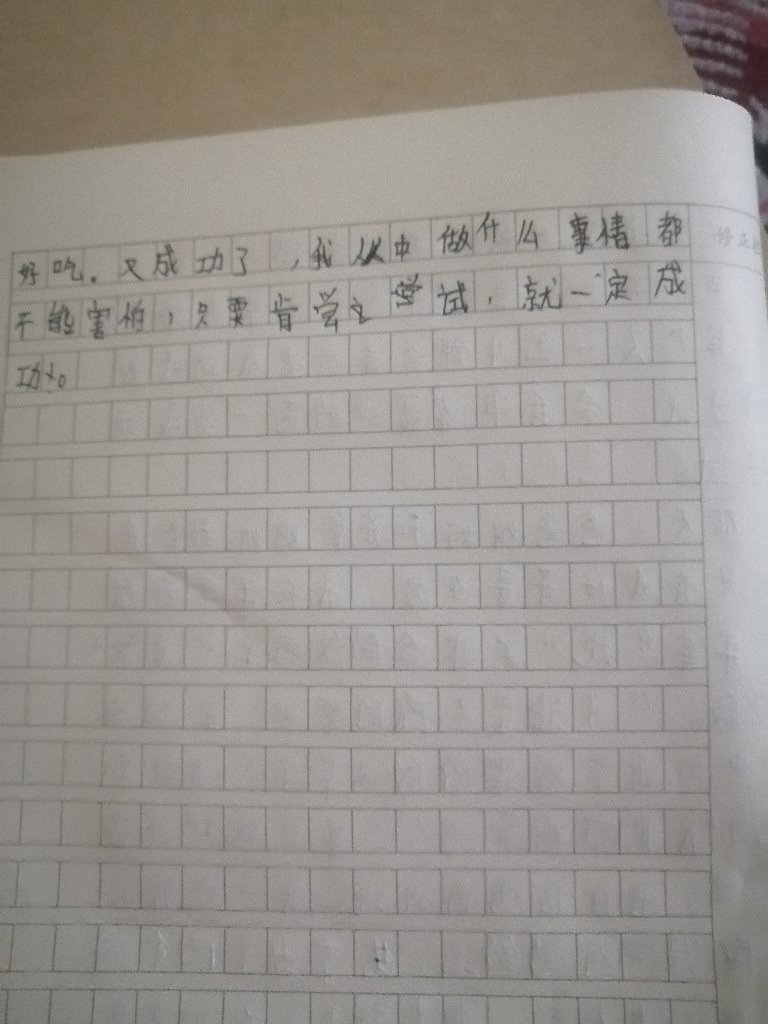 好吃。又成功了，我从中做什么事情都
不能害怕，只要肯尝之尝试，就一定成
功。